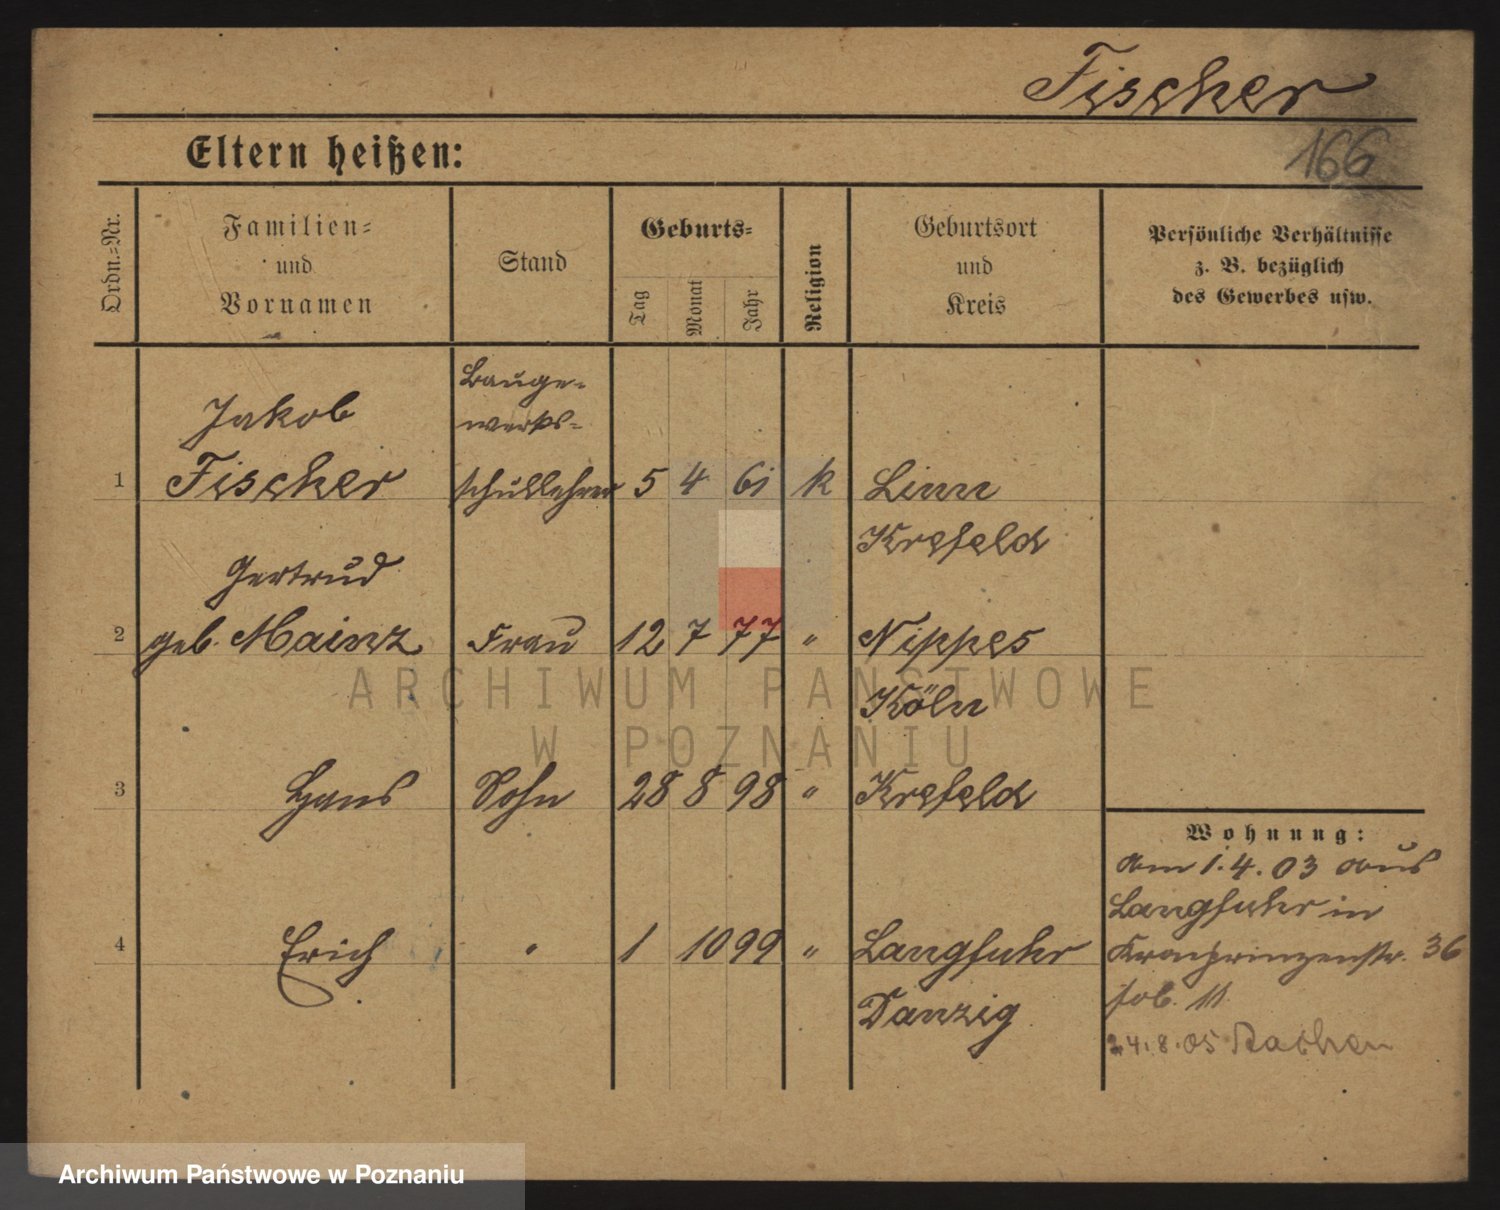 Fischer
166
Eltern heißen:
Ordn.=Nr.
Familien=
und
Vornamen
Stand
Geburts=
Tag
Monat
Jahr
Religion
Geburtsort
und
Kreis
Persönliche Verhältnisse
z. B. bezüglich
des Gewerbes usw.
Jakob
Bauge-
werks-
1 Fischer schullehrer 5 4 61 k Linn
Krefeld
Gertrud
2 geb. Mainz Frau 12 7 77 " Nippes
Köln
3 Hans Sohn 28 8 98 " Krefeld
4 Erich " 1 10 99 " Langfuhr
Danzig
Wohnung:
am 1.4.03 aus
Langfuhr in
Kronprinzenstr. 36
24.8.05 Aachen
ARCHIWUM PAŃSTWOWE
W POZNANIU
Archiwum Państwowe w Poznaniu